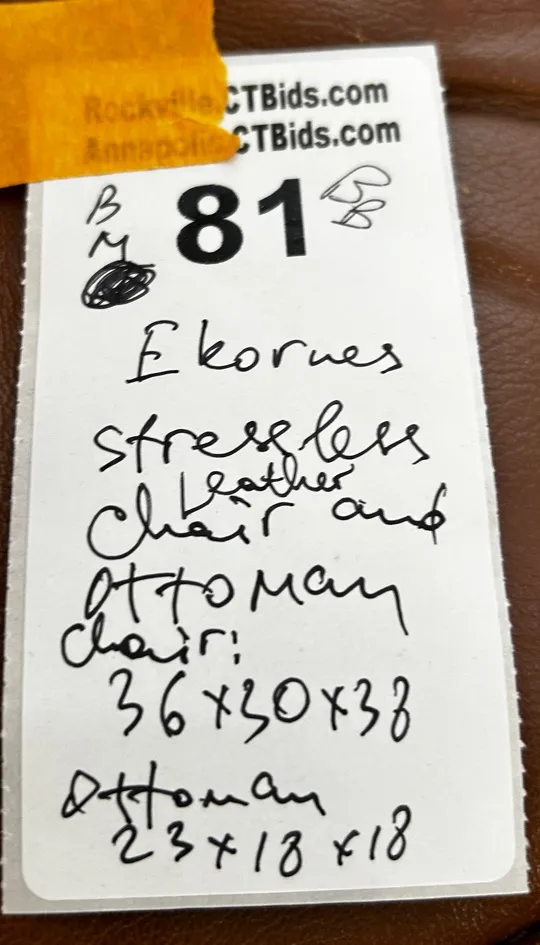 Rockville.CTBids.com
Annapolis.CTBids.com
B
M
81
Ekornes
stressless
Leather
chair and
ottoman
chair:
36x30x38
Ottoman
23x18x18